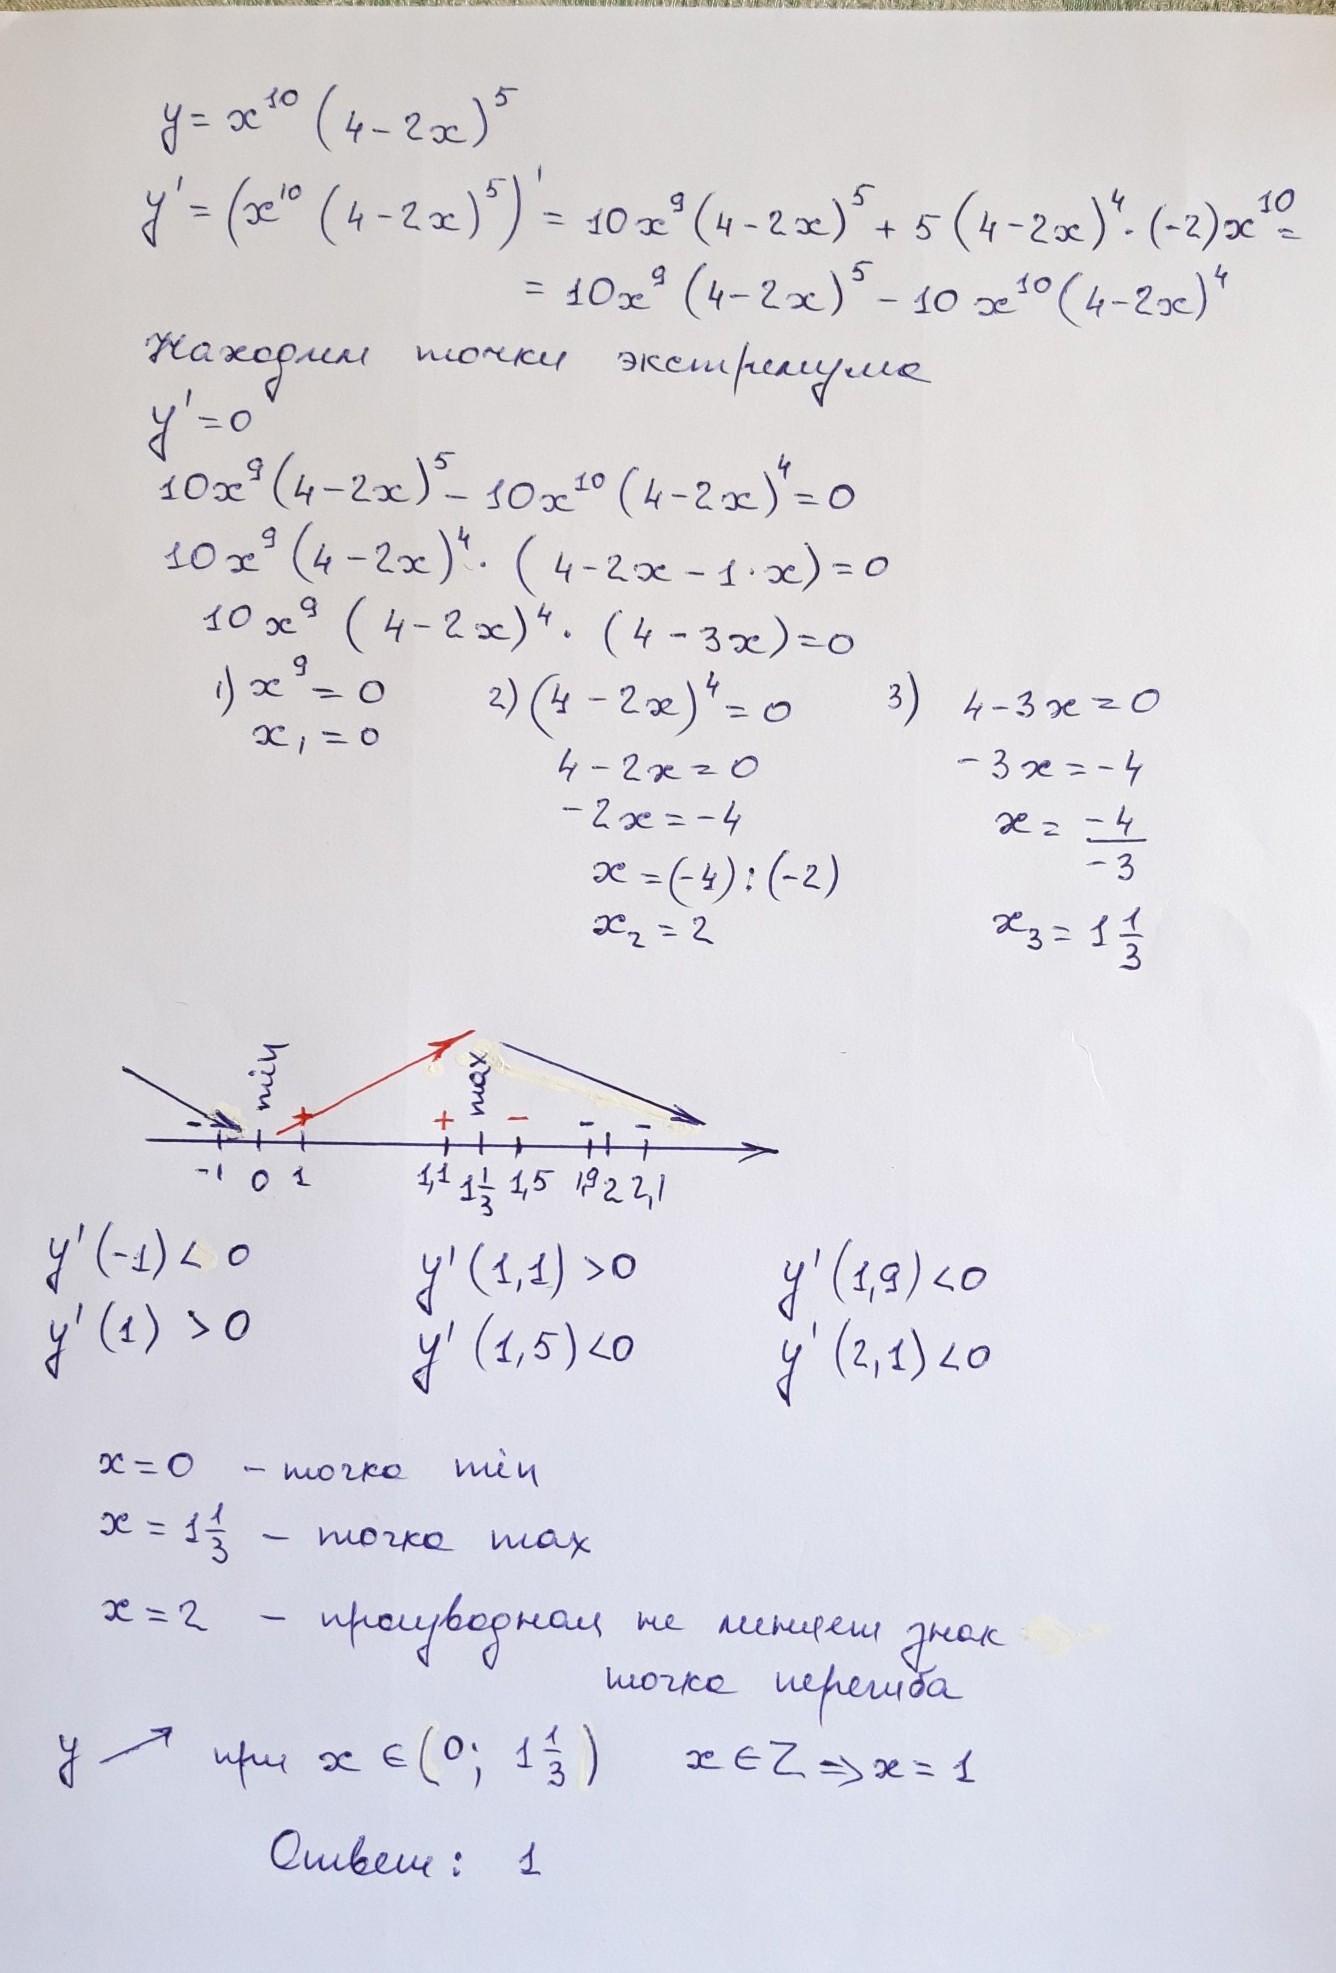 y = x¹⁰ (4 - 2x)⁵
y' = (x¹⁰ (4 - 2x)⁵)' = 10x⁹ (4 - 2x)⁵ + 5 (4 - 2x)⁴ · (-2) x¹⁰ =
= 10x⁹ (4 - 2x)⁵ - 10 x¹⁰ (4 - 2x)⁴
Находим точки экстремума
y' = 0
10x⁹ (4 - 2x)⁵ - 10x¹⁰ (4 - 2x)⁴ = 0
10x⁹ (4 - 2x)⁴ · (4 - 2x - 1 · x) = 0
10x⁹ (4 - 2x)⁴ · (4 - 3x) = 0
1) x⁹ = 0 2) (4 - 2x)⁴ = 0 3) 4 - 3x = 0
x₁ = 0 4 - 2x = 0 -3x = -4
-2x = -4 x = -4/-3
x = (-4) : (-2)
x₂ = 2 x₃ = 1 1/3
min max
- + + - - -
-1 0 1 1,1 1 1/3 1,5 1,9 2 2,1
y'(-1) < 0 y'(1,1) > 0 y'(1,9) < 0
y'(1) > 0 y'(1,5) < 0 y'(2,1) < 0
x = 0 - точка min
x = 1 1/3 - точка max
x = 2 - производная не меняет знак
точка перегиба
y ↗ при x ∈ (0; 1 1/3) x ∈ Z ⇒ x = 1
Ответ: 1